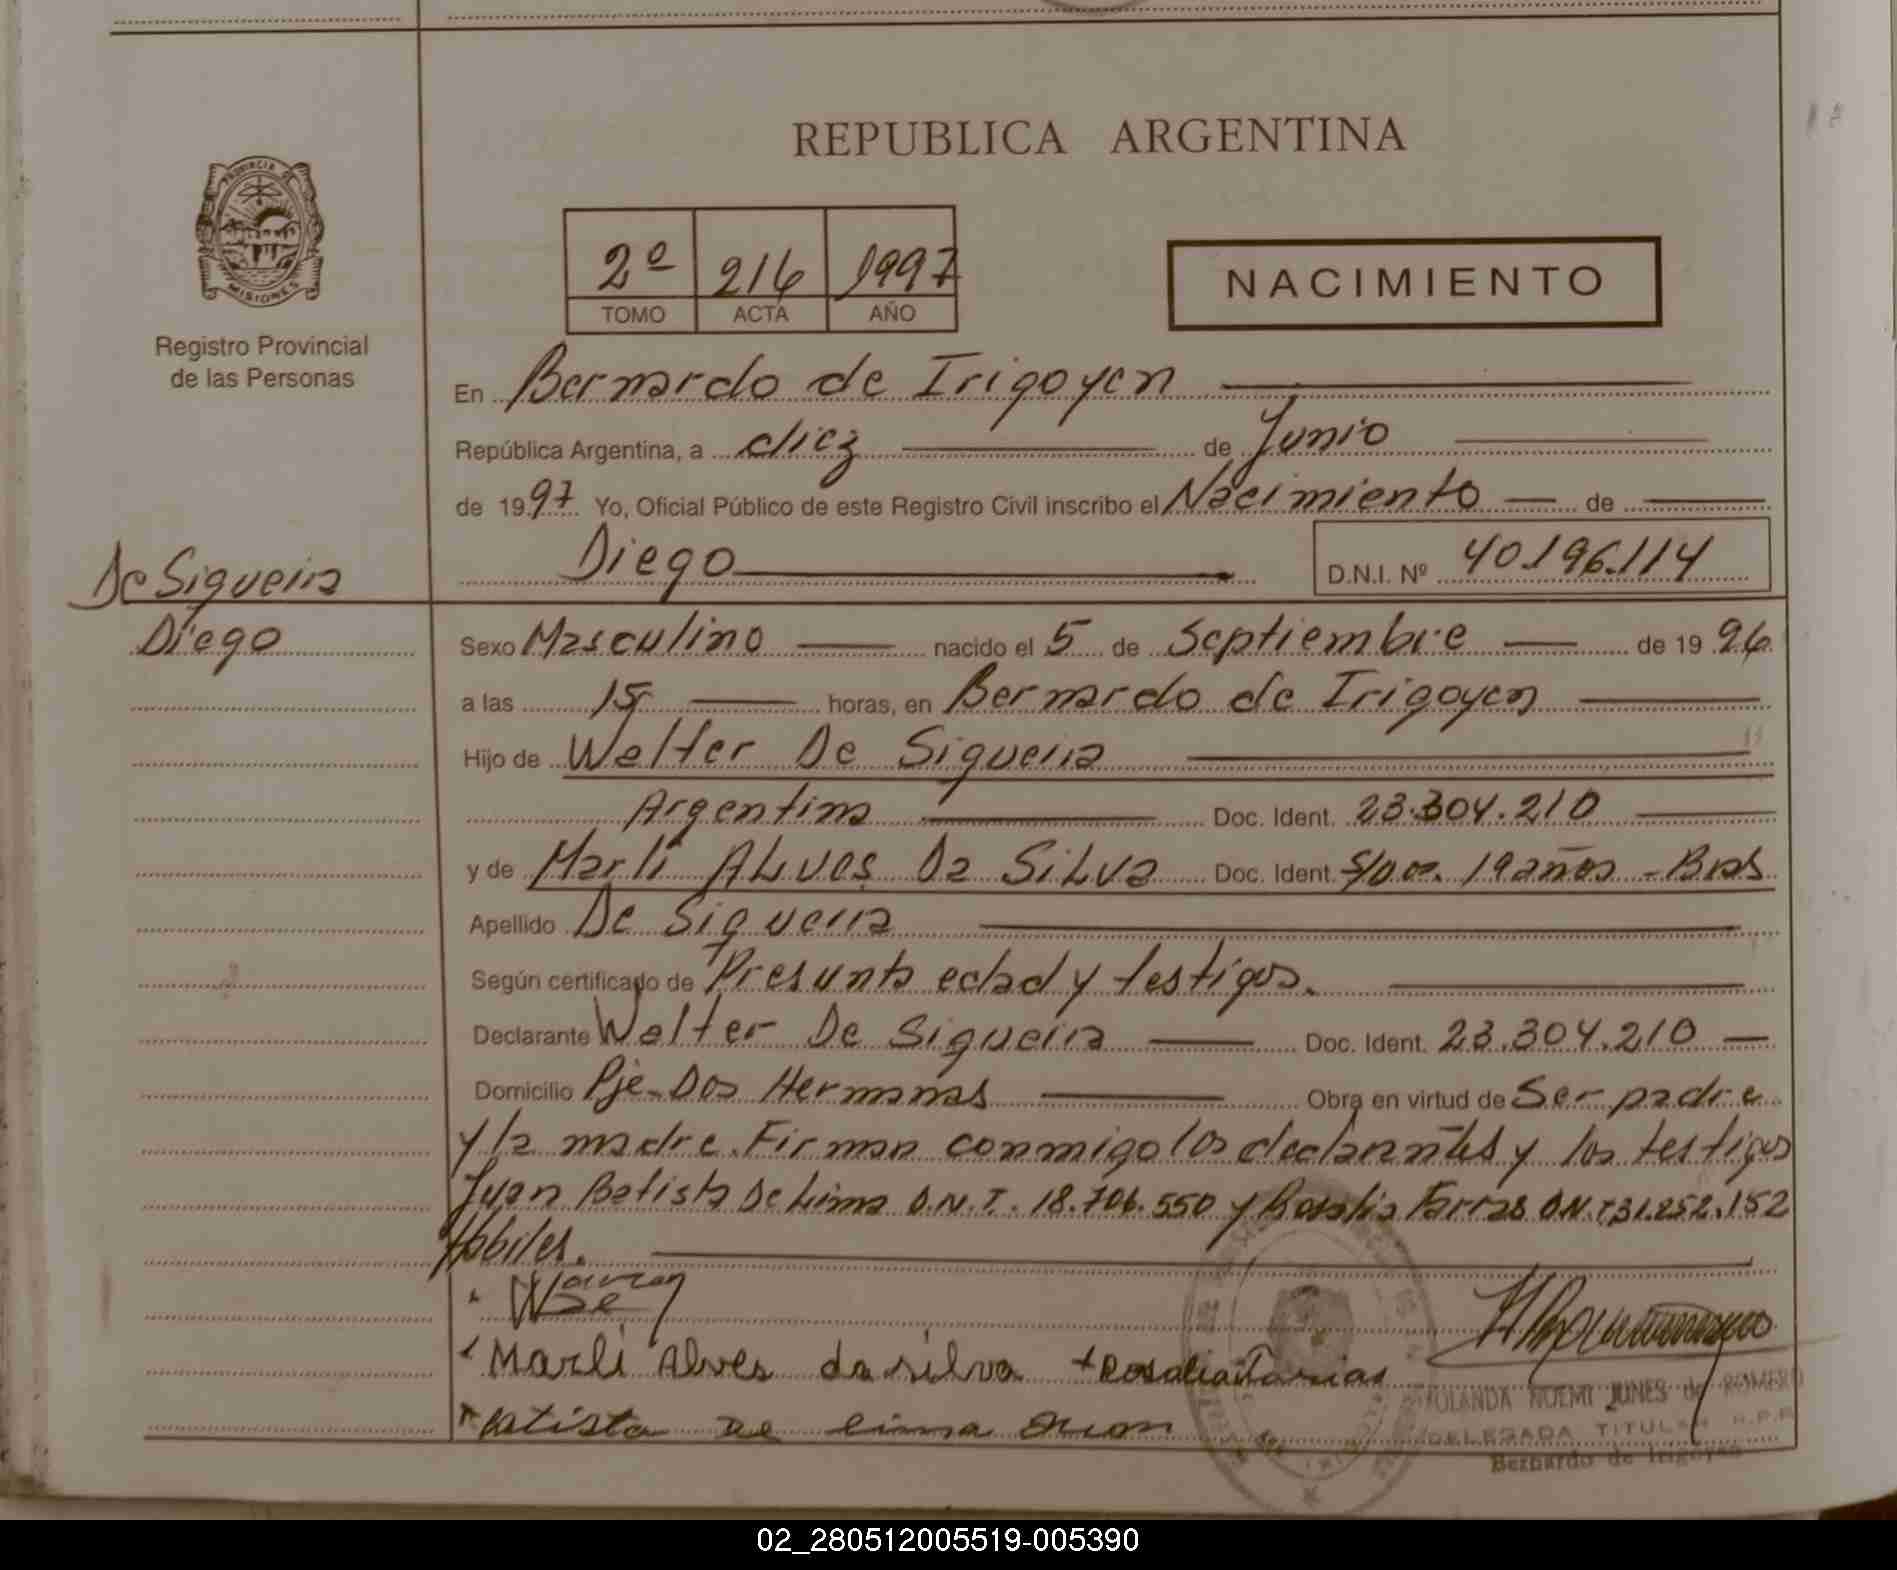 REPUBLICA ARGENTINA
PROVINCIA DE
MISIONES
Registro Provincial
de las Personas
2º 216 1997
TOMO ACTA AÑO
NACIMIENTO
En Bernardo de Irigoyen
República Argentina, a diez de Junio
de 1997 Yo, Oficial Público de este Registro Civil inscribo el Nacimiento de
Diego D.N.I. Nº 40.196.114
De Siqueira
Diego
Sexo Masculino nacido el 5 de Septiembre de 1996
a las 15 horas, en Bernardo de Irigoyen
Hijo de Walter De Siqueira
Argentina Doc. Ident. 23.304.210
y de Marli ALves Da SiLva Doc. Ident. S/Doc. 19 años - Bras
Apellido De Siqueira
Según certificado de Presunta edad y testigos.
Declarante Walter De Siqueira Doc. Ident. 23.304.210
Domicilio Pje. Dos Hermanas Obra en virtud de Ser padre
y la madre. Firman conmigo los declarantes y los testigos
Juan Batista De Lima D.N.I. 18.706.550 y Rosalia Farias D.N.I 31.252.152
Habiles.
Marli Alves da silva + Rosalia Farias
Batista De lima Juan
YOLANDA NOEMI JUNES de ROMERO
DELEGADA TITULAR R.P.P.
Bernardo de Irigoyen
02_280512005519-005390